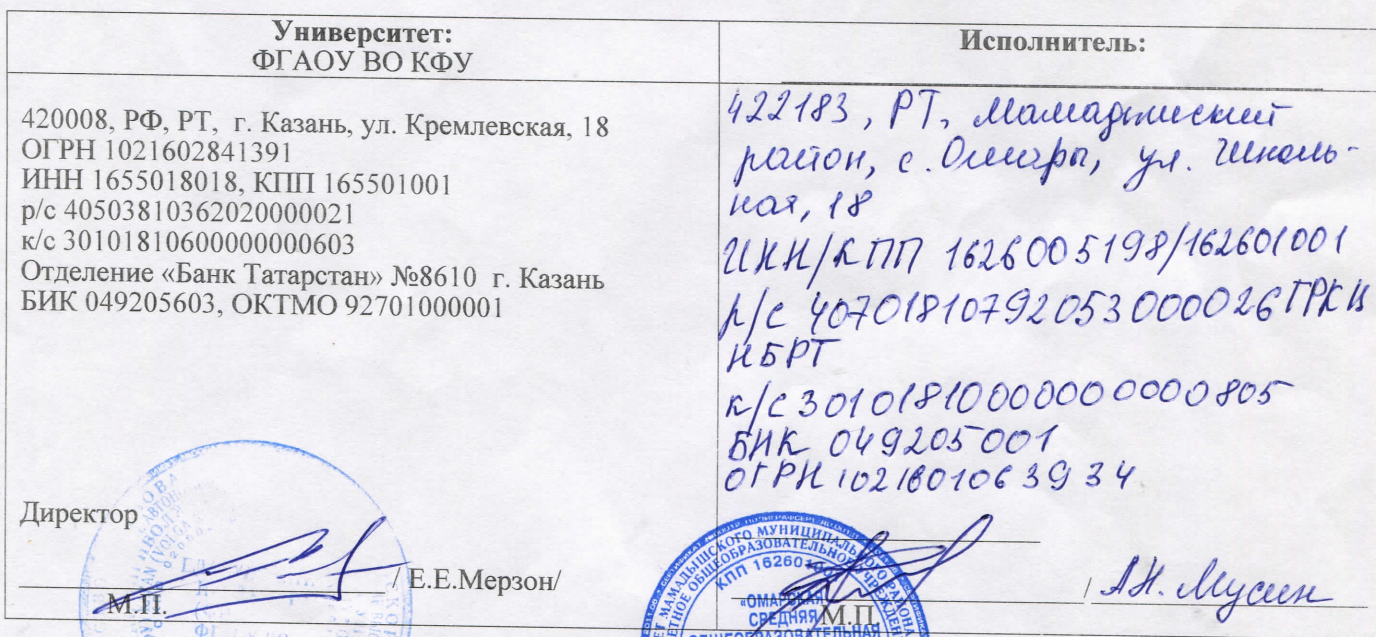 Университет:
ФГАОУ ВО КФУ
420008, РФ, РТ, г. Казань, ул. Кремлевская, 18
ОГРН 1021602841391
ИНН 1655018018, КПП 165501001
р/с 40503810362020000021
к/с 30101810600000000603
Отделение «Банк Татарстан» №8610 г. Казань
БИК 049205603, ОКТМО 92701000001
Директор
/ Е.Е.Мерзон/
М.П.
Исполнитель:
422183, РТ, Мамадышский
район, с. Омары, ул. Школь-
ная, 18
ИНН/КПП 1626005198/162601001
р/с 40701810792053000026 ГРКЦ
НБРТ
к/с 30101810000000000805
БИК 049205001
ОГРН 1021601063934
/ А.Н. Мусин
М.П.
МАМАДЫШСКОГО МУНИЦИПАЛЬНОГО РАЙОНА
ОБЩЕОБРАЗОВАТЕЛЬНОЕ УЧРЕЖДЕН
КПП 16260
«ОМАРСКАЯ
СРЕДНЯЯ
ОБЩЕОБРАЗОВАТЕЛЬНАЯ